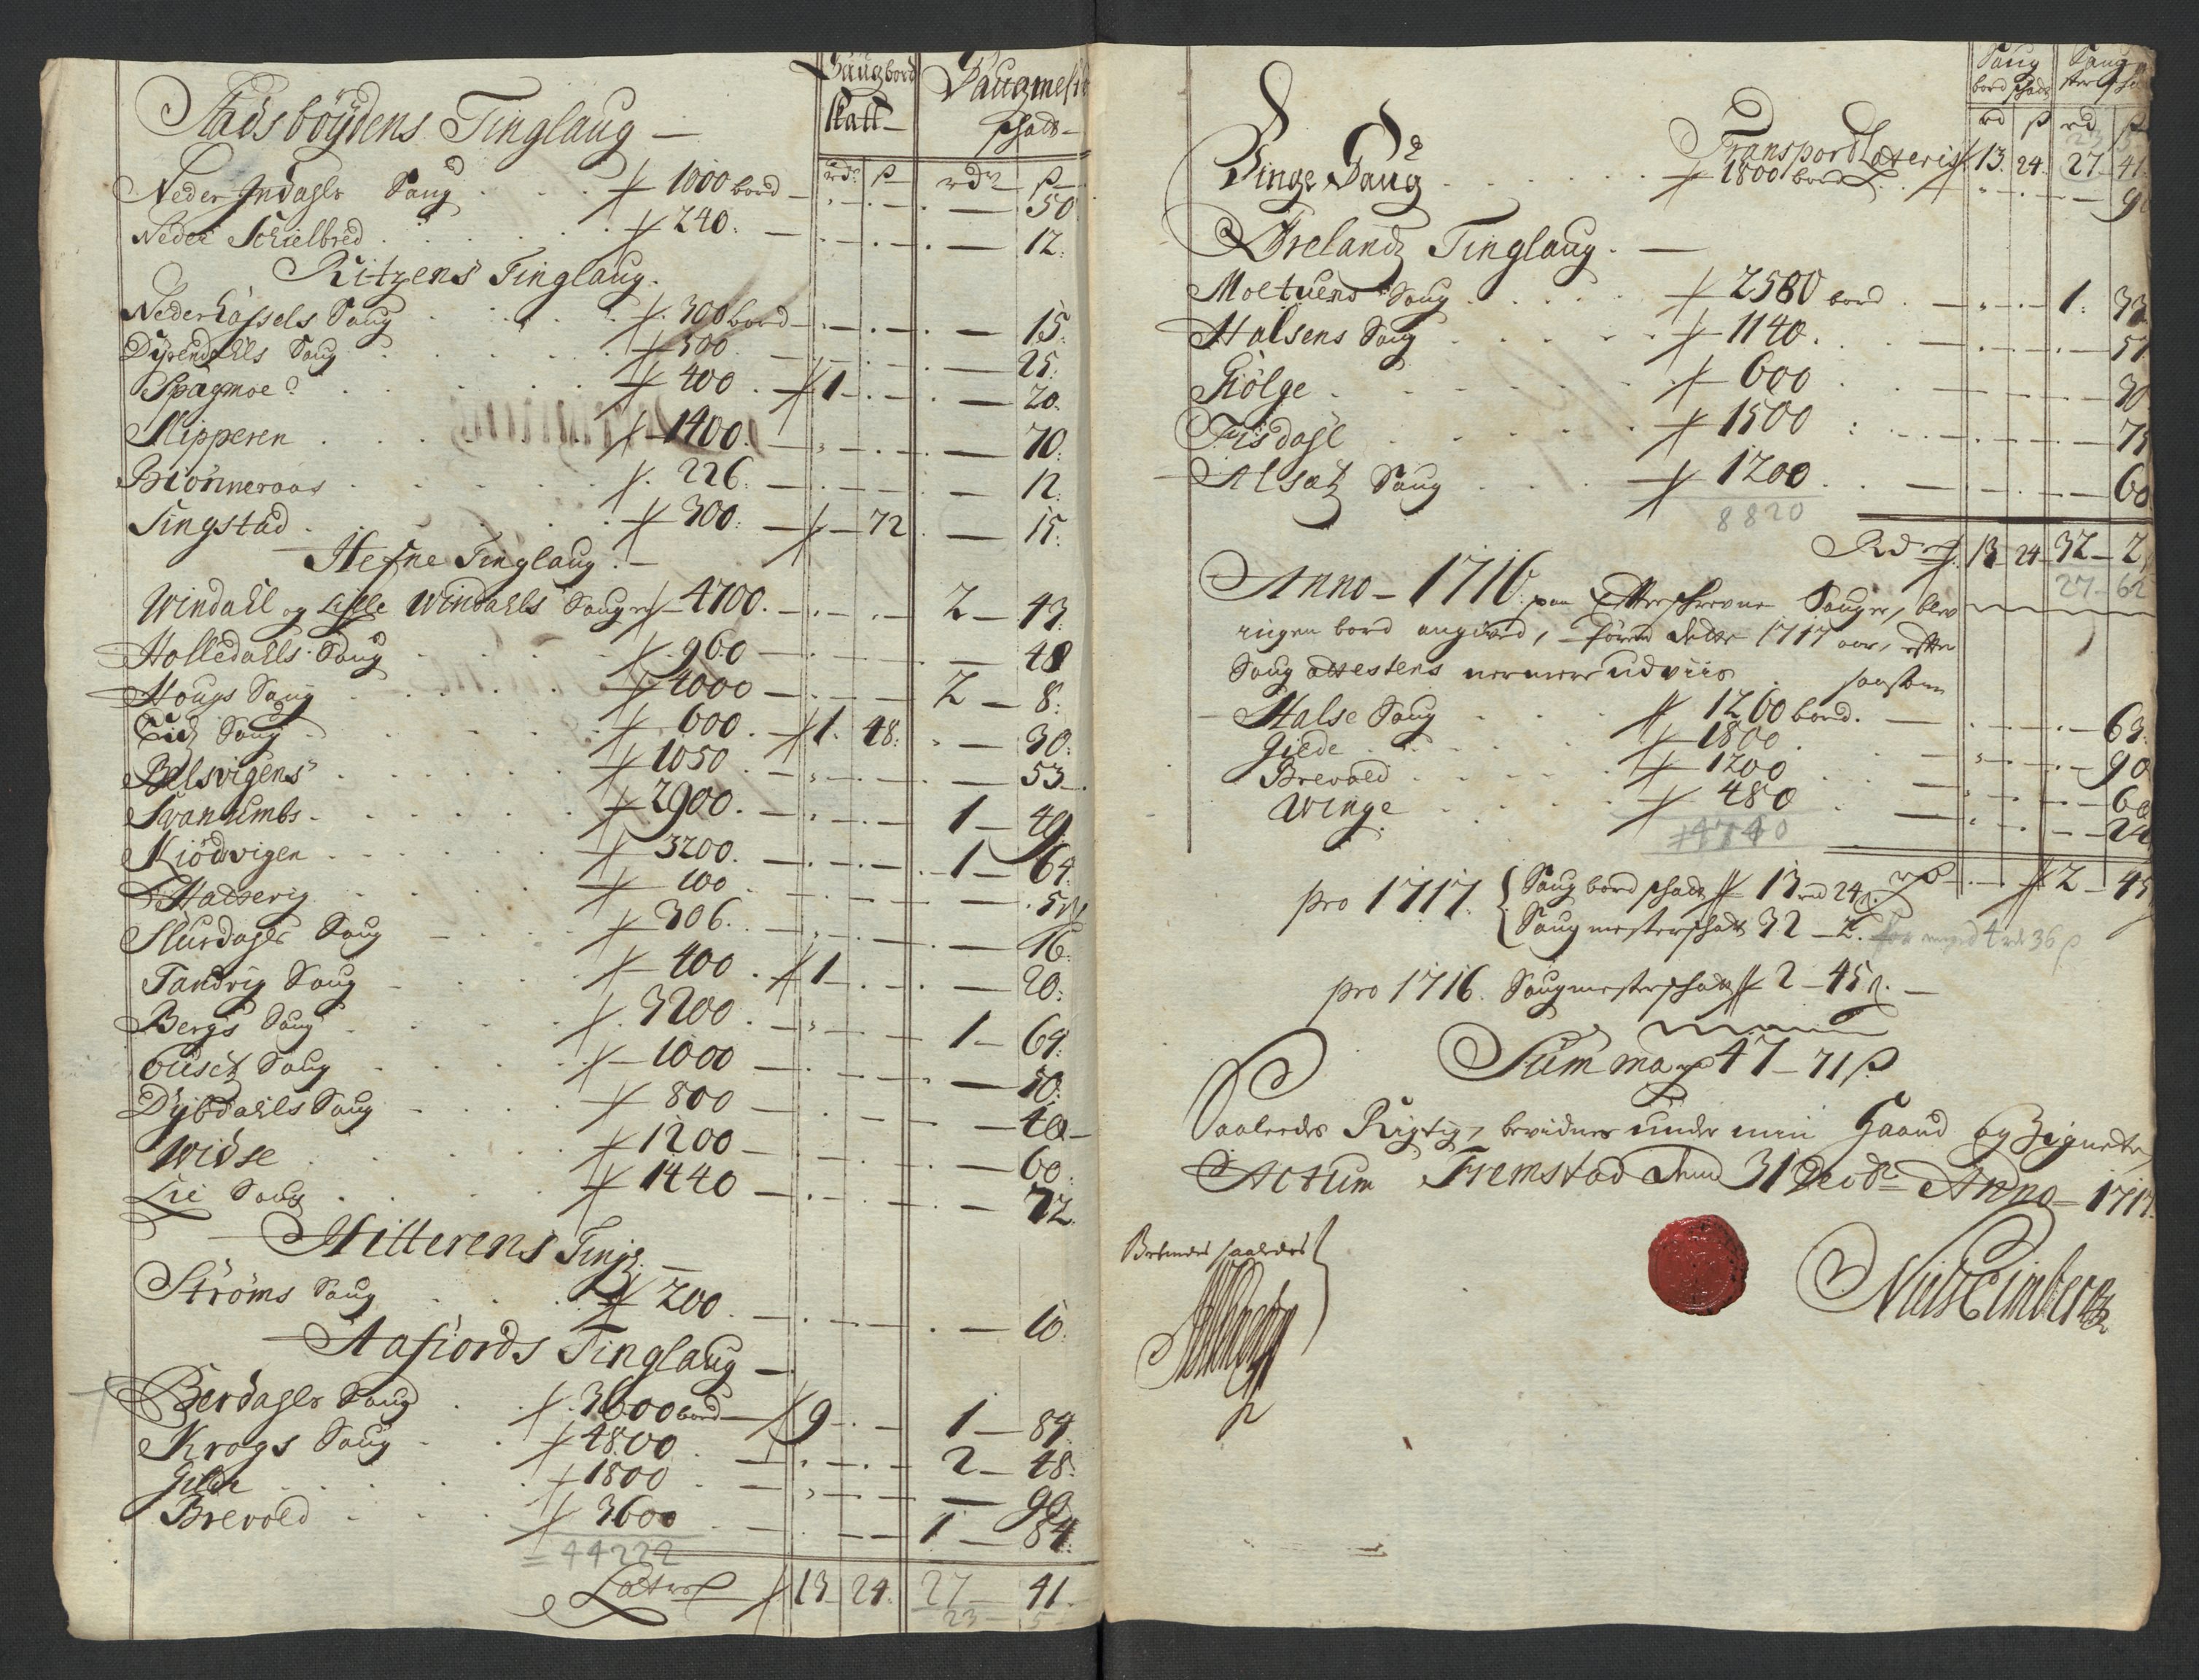 Saugbord skatt — Saugmester schatt —
Stadsbøÿdens Tinglaug —
rdr ß rdr ß
Neder Indagls Saug 1000 bord — 50
Neder Schielbred 240. — 12:
Ritzens Tinglaug.
Nederhassels Saug 300 bord — 15:
Dÿrendahls Saug 500. — 25:
Spagmoe 400. 1 — 20.
Slipperen 1400. — 70:
Biönneraas 226. — 12:
Singstad 300: — 72 — 15:
Hefne Tinglaug. —
Windahl og Lisle Windahls Sauger 4700. — 2 — 43:
Holledahls Saug 960 — 48
Hougs Saug 4000 — 2 — 8:
Eidz Saug 600. 1. 48: — 30:
Belsvigens 1050. — 53.
Svanumbs 2900. — 1 — 49.
Kiödsvigen 3200. — 1 — 64:
Hadserig 100 — 5
Slurdagls Saug 306. — 16:
Tandrig Saug 400. 1 — 20:
Bergs Saug 3200. — 1 — 64:
Ousetz Saug 1000 — 50:
Dÿbdahls Saug 800 — 40 —
Widse 1200 — 60.
Lie Saug 1440 — 72.
Hitterens Tingl. —
Ströms Saug 200. — 10:
Aafiords Tinglaug —
Berdagls Saug 3600 bord — 9 — 1 — 84.
Krogs Saug 4800 — 2 — 48:
Gilde 1800 — 90
Brevold 3600 — 1 — 84:
= 44222
Lateris 13 24. 27 — 41.
23 — 5
Saug bord schatt Saug mester schatt
rd ß rd ß
Transport Lateris 13. 24. 27 — 41.
Winge Saug 1800 bord — 90
Ørelandz Tinglaug. —
Moetuens Saug 2580 bord — 1: 33
Halsens Saug 1140. — 57
Giölge 600 — 30
Fisdagl 1500 — 75
Alsetz Saug 1200 — 60
8820
Rdr 13 24 32 — 2
27 — 62
Anno — 1716. paa Efterschrevne Sauger, blev
ingen bord angived, förend dette 1717 aar, efter
Saug attestens nermere udviis saasom
Halse Saug 1260 bord. — 63:
Gielde 1800. — 90
Brevold 1200 — 60
Winge 480 — 24
4740
2 — 45
pro 1717. Saug bord schatt 13 rd 24 ß.
Saug mester schatt 32 — 2.
4 rdr 36 ß
pro 1716. Saugmester schatt 2 — 45 ß. —
Summa 47 — 71 ß
Saaledes Rigtig, bevidner under min Haand og Zignete
Actum Fremstad den 31 Decbr Anno — 1717
Bekendes saaledes
Niels Eimberg